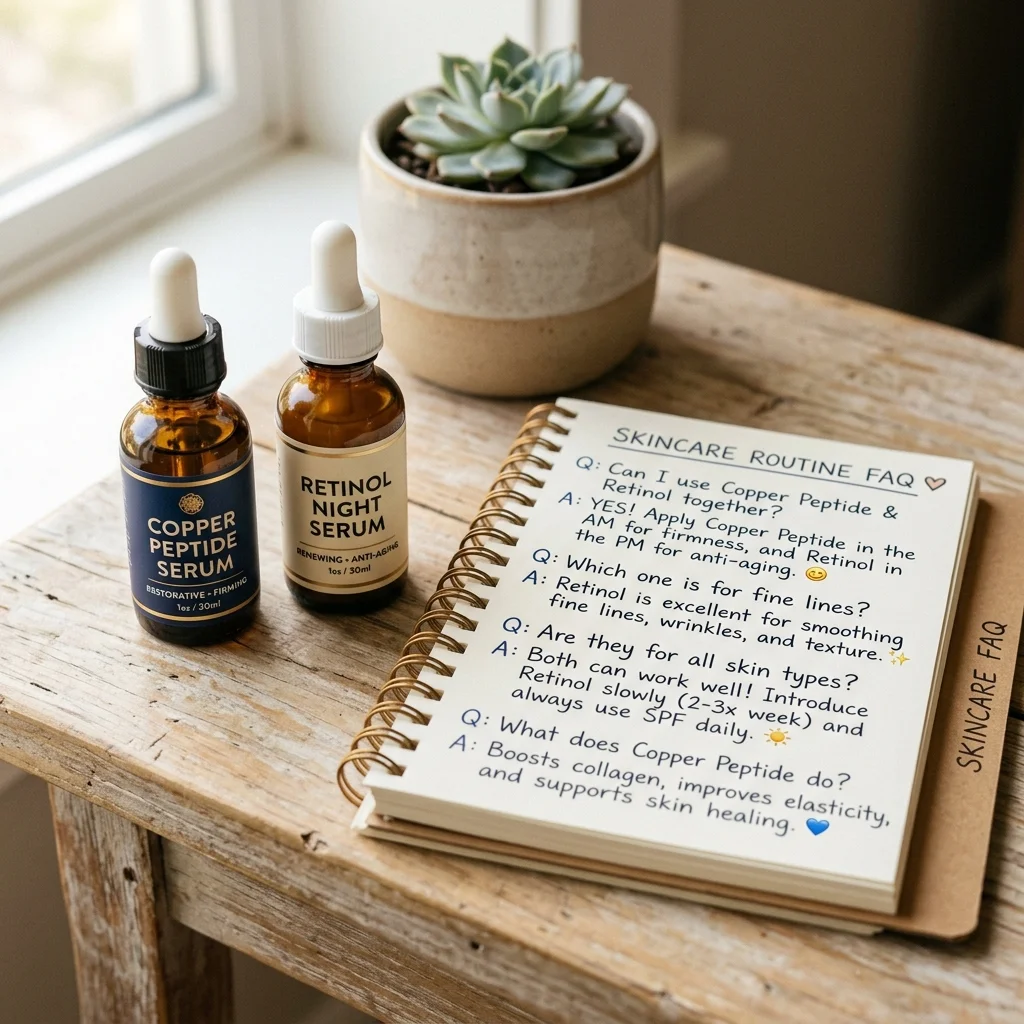 COPPER
PEPTIDE
SERUM
RESTORATIVE • FIRMING
1oz / 30ml
RETINOL
NIGHT
SERUM
RENEWING • ANTI-AGING
1os / 30ml
SKINCARE ROUTINE FAQ
Q: Can I use Copper Peptide &
Retinol together?
A: YES! Apply Copper Peptide in the
AM for firmness, and Retinol in
the PM for anti-aging. 😊
Q: Which one is for fine lines?
A: Retinol is excellent for smoothing
fine lines, wrinkles, and texture. ✨
Q: Are they for all skin types?
A: Both can work well! Introduce
Retinol slowly (2-3x week) and
always use SPF daily. ☀️
Q: What does Copper Peptide do?
A: Boosts collagen, improves elasticity,
and supports skin healing. 💙
SKINCARE FAQ